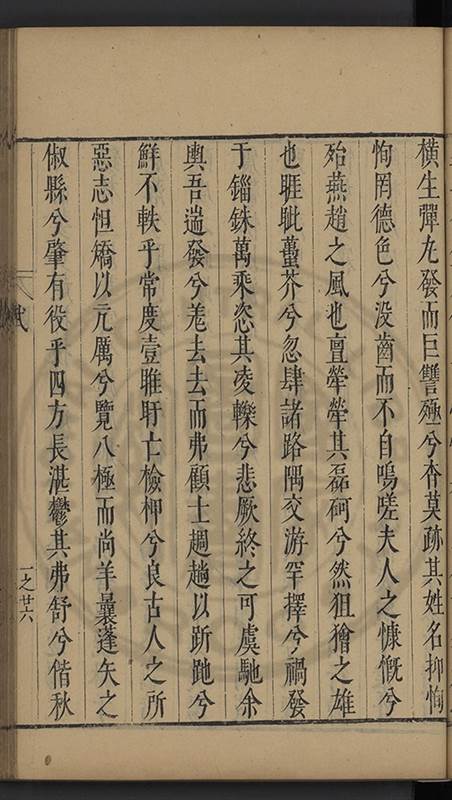 橫生彈丸發而巨讐殛兮杳莫跡其姓名抑恂
恂罔德色兮没齒而不自鳴嗟夫人之慷慨兮
殆燕趙之風也亶犖犖其磊砢兮然狙獪之雄
也睚眦蠆芥兮忽肆諸路隅交游罕擇兮禍發
于錙銖萬乘恣其凌轢兮悲厥終之可虞馳余
輿吾遄發兮羗去去而弗顧士趄趑以跅跎兮
鮮不軼乎常度壹睢盱亡檢柙兮良古人之所
惡志怛矯以亢厲兮覽八極而尚羊曩蓬矢之
俶縣兮肇有役乎四方長湛鬱其弗舒兮偕秋
賦
一之廿六